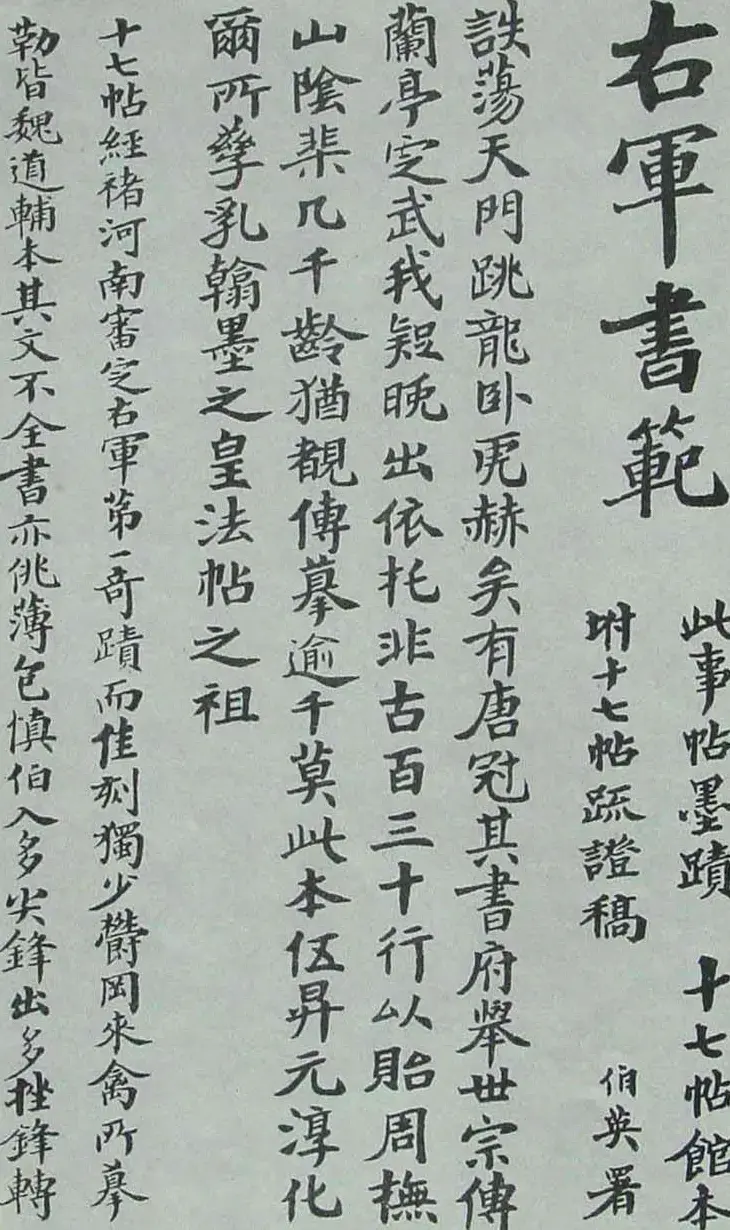 右軍書範
此事帖墨蹟 十七帖館本
附十七帖疏證稿 伯英署
詄蕩天門跳龍卧虎赫矣有唐冠其書府舉世宗傳
蘭亭定武我疑晚出依托非古百三十行以貽周撫
山陰棐几千齡猶覩傳摹逾千莫此本伍昇元淳化
爾所孳乳翰墨之皇法帖之祖
十七帖經褚河南審定右軍第一奇蹟而佳刻獨少鬱岡來禽所摹
勒皆魏道輔本其文不全書亦佻薄包慎伯入多尖鋒出多挫鋒轉